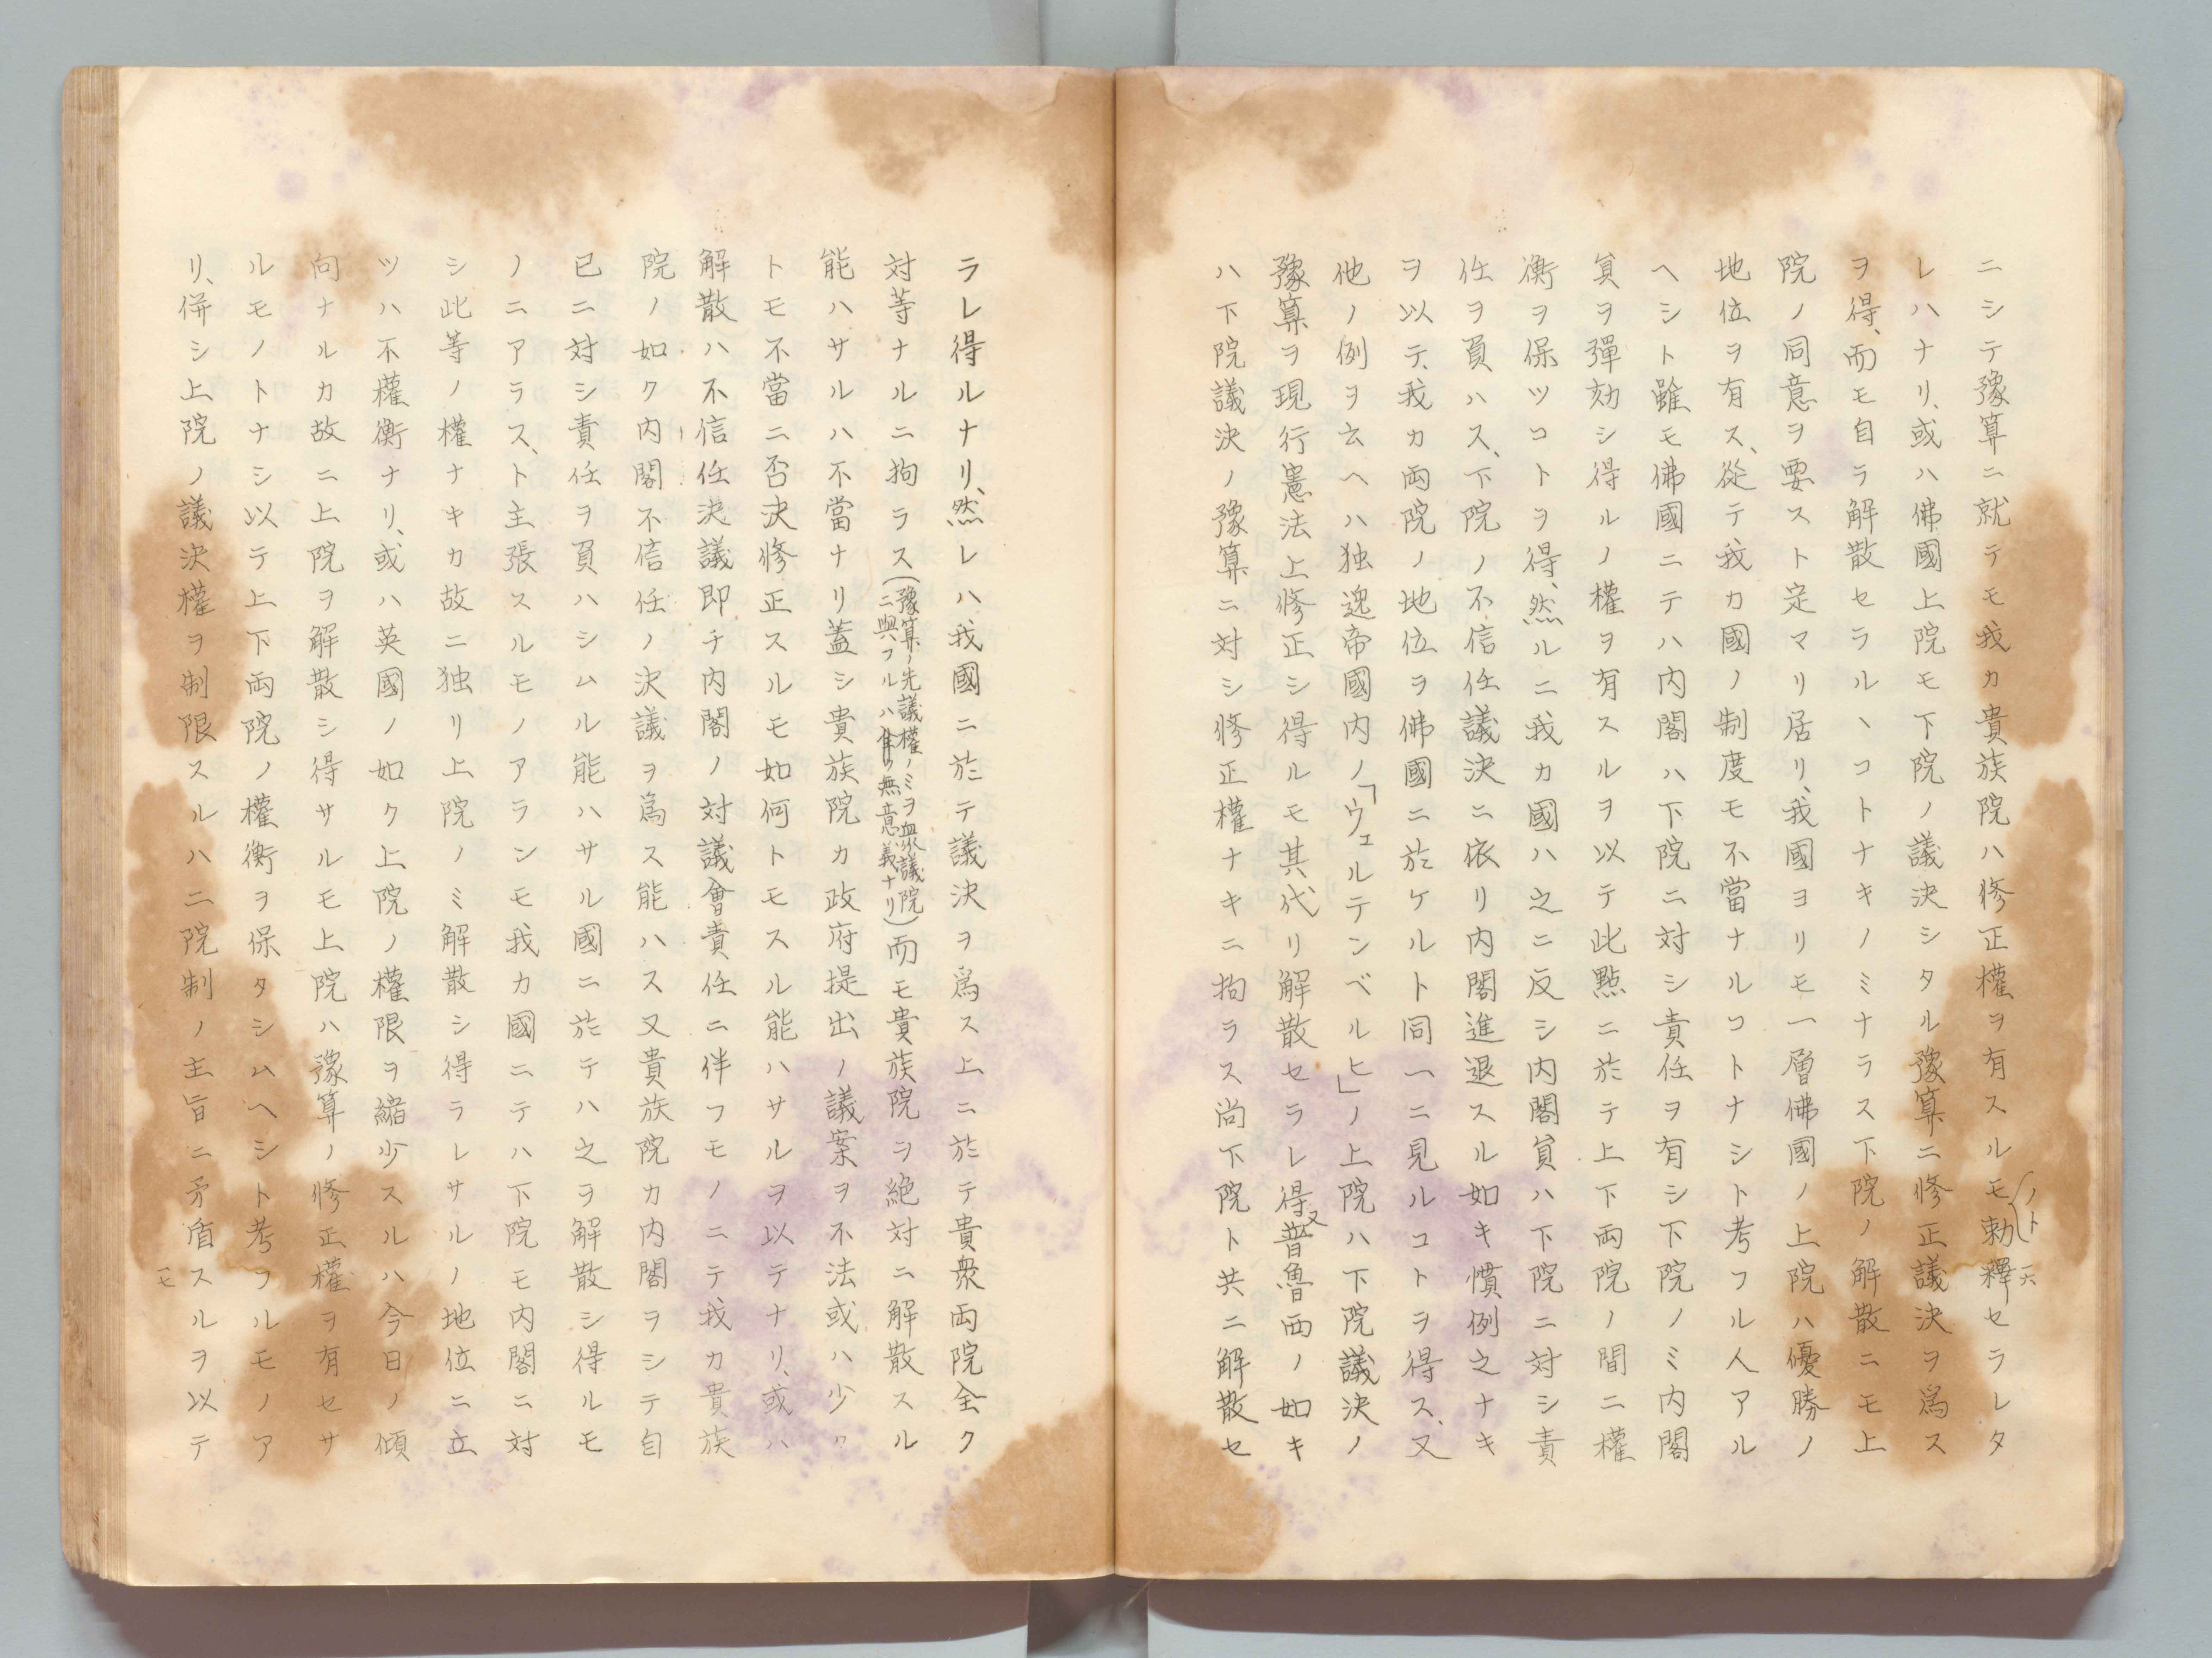 ニシテ豫算ニ就テモ我カ貴族院ハ修正權ヲ有スルモノト勅釋セラレタ
レハナリ、或ハ佛國上院モ下院ノ議決シタル豫算ニ修正議決ヲ爲ス
ヲ得、而モ自ラ解散セラルヽコトナキノミナラス下院ノ解散ニモ上
院ノ同意ヲ要スト定マリ居リ、我國ヨリモ一層佛國ノ上院ハ優勝ノ
地位ヲ有ス、從テ我カ國ノ制度モ不當ナルコトナシト考フル人アル
ヘシト雖モ佛國ニテハ内閣ハ下院ニ対シ責任ヲ有シ下院ノミ内閣
員ヲ彈劾シ得ルノ權ヲ有スルヲ以テ此點ニ於テ上下両院ノ間ニ權
衡ヲ保ツコトヲ得、然ルニ我カ國ハ之ニ反シ内閣員ハ下院ニ対シ責
任ヲ負ハス、下院ノ不信任議決ニ依リ内閣進退スル如キ慣例之ナキ
ヲ以テ、我カ両院ノ地位ヲ佛國ニ於ケルト同一ニ見ルコトヲ得ス、又
他ノ例ヲ云ヘハ独逸帝國内ノ「ウェルテンベルヒ」ノ上院ハ下院議決ノ
豫算ヲ現行憲法上修正シ得ルモ其代リ解散セラレ得又普魯西ノ如キ
ハ下院議決ノ豫算ニ対シ修正權ナキニ拘ラス尚下院ト共ニ解散セ
ラレ得ルナリ、然レハ、我國ニ於テ議決ヲ爲ス上ニ於テ貴衆両院全ク
対等ナルニ拘ラス(豫算ノ先議權ノミヲ衆議院ニ與フルハ無意義ナリ)而モ貴族院ヲ絶対ニ解散スル
能ハサルハ不當ナリ蓋シ貴族院カ政府提出ノ議案ヲ不法或ハ少ク
トモ不當ニ否決修正スルモ如何トモスル能ハサルヲ以テナリ、或ハ
解散ハ不信任決議即チ内閣ノ対議會責任ニ伴フモノニテ我カ貴族
院ノ如ク内閣不信任ノ決議ヲ爲ス能ハス又貴族院カ内閣ヲシテ自
已ニ対シ責任ヲ負ハシムル能ハサル國ニ於テハ之ヲ解散シ得ルモ
ノニアラス、ト主張スルモノアランモ我カ國ニテハ下院モ内閣ニ対
シ此等ノ權ナキカ故ニ独リ上院ノミ解散シ得ラレサルノ地位ニ立
ツハ不權衡ナリ、或ハ英國ノ如ク上院ノ權限ヲ縮少スルハ今日ノ傾
向ナルカ故ニ上院ヲ解散シ得サルモ上院ハ豫算ノ修正權ヲ有セサ
ルモノトナシ以テ上下両院ノ權衡ヲ保タシムヘシト考フルモノア
リ、併シ上院ノ議決權ヲ制限スルハ二院制ノ主旨ニ矛盾スルヲ以テ
一六
一七